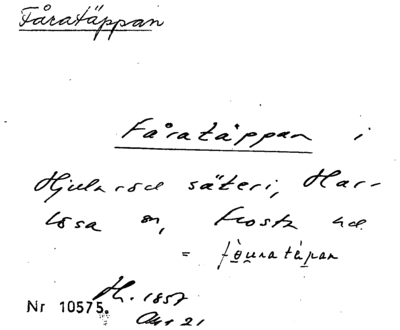 Fåratäppan
Fåratäppan i
säteri, Har-
lösa sn, Frosta hd.
= fòuratápan
H. 1857
Nr 10575.